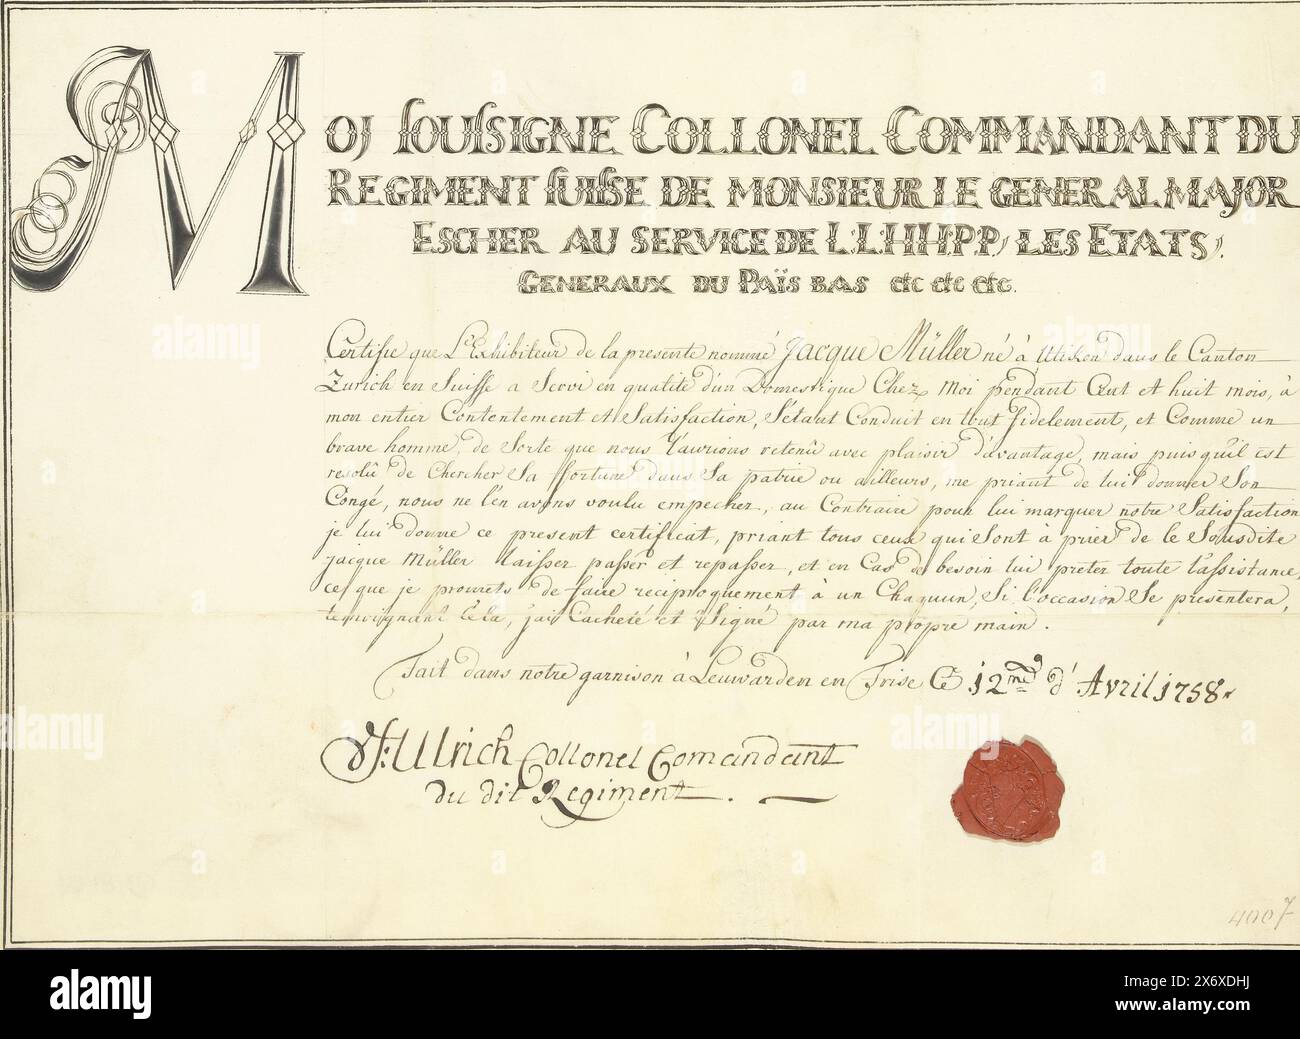 MOJ SOUSSIGNE COLLONEL COMMANDANT DU
REGIMENT SUISSE DE MONSIEUR LE GENERAL MAJOR
ESCHER AU SERVICE DE L:L:H:H:P:P:, LES ETATS,
GENERAUX DU PAÏS BAS etc etc etc.
Certifie que L'Exhibiteur de la presente nommé Jacque Müller né à Utiken dans le Canton
Zurich en Suisse a Servi en qualité d'un Domestique Chez Moi pendant Cent et huit mois, à
mon entier Contentement et Satisfaction, S'étant Conduit en tout fidelement, et Comme un
brave homme, de Sorte que nous l'aurions retenû avec plaisir d'avantage, mais puisqu'il est
resolû de Chercher Sa fortune dans Sa patrie ou ailleurs, me priant de lui donner Son
Congé, nous ne l'en avons voulu empecher, au Contraire pour lui marquer notre Satisfaction
je lui donne ce present certificat, priant tous ceux qui Sont à prier de le Sousdite
jacque Müller laisser passer et repasser, et en Cas de besoin lui preter toute l'assistance,
ce que je promets de faire reciproquement à un Chaquun, Si l'occasion Se presentera,
temoignant Cela, j'ai Cacheté et Signé par ma propre main.
Fait dans notre garnison à Leuwarden en Frise Ce 12me d'Avril 1758
J:Ulrich Collonel Comandant
du dit Regiment.
4007
alamy
Image ID: 2X6XDHJ
www.alamy.com